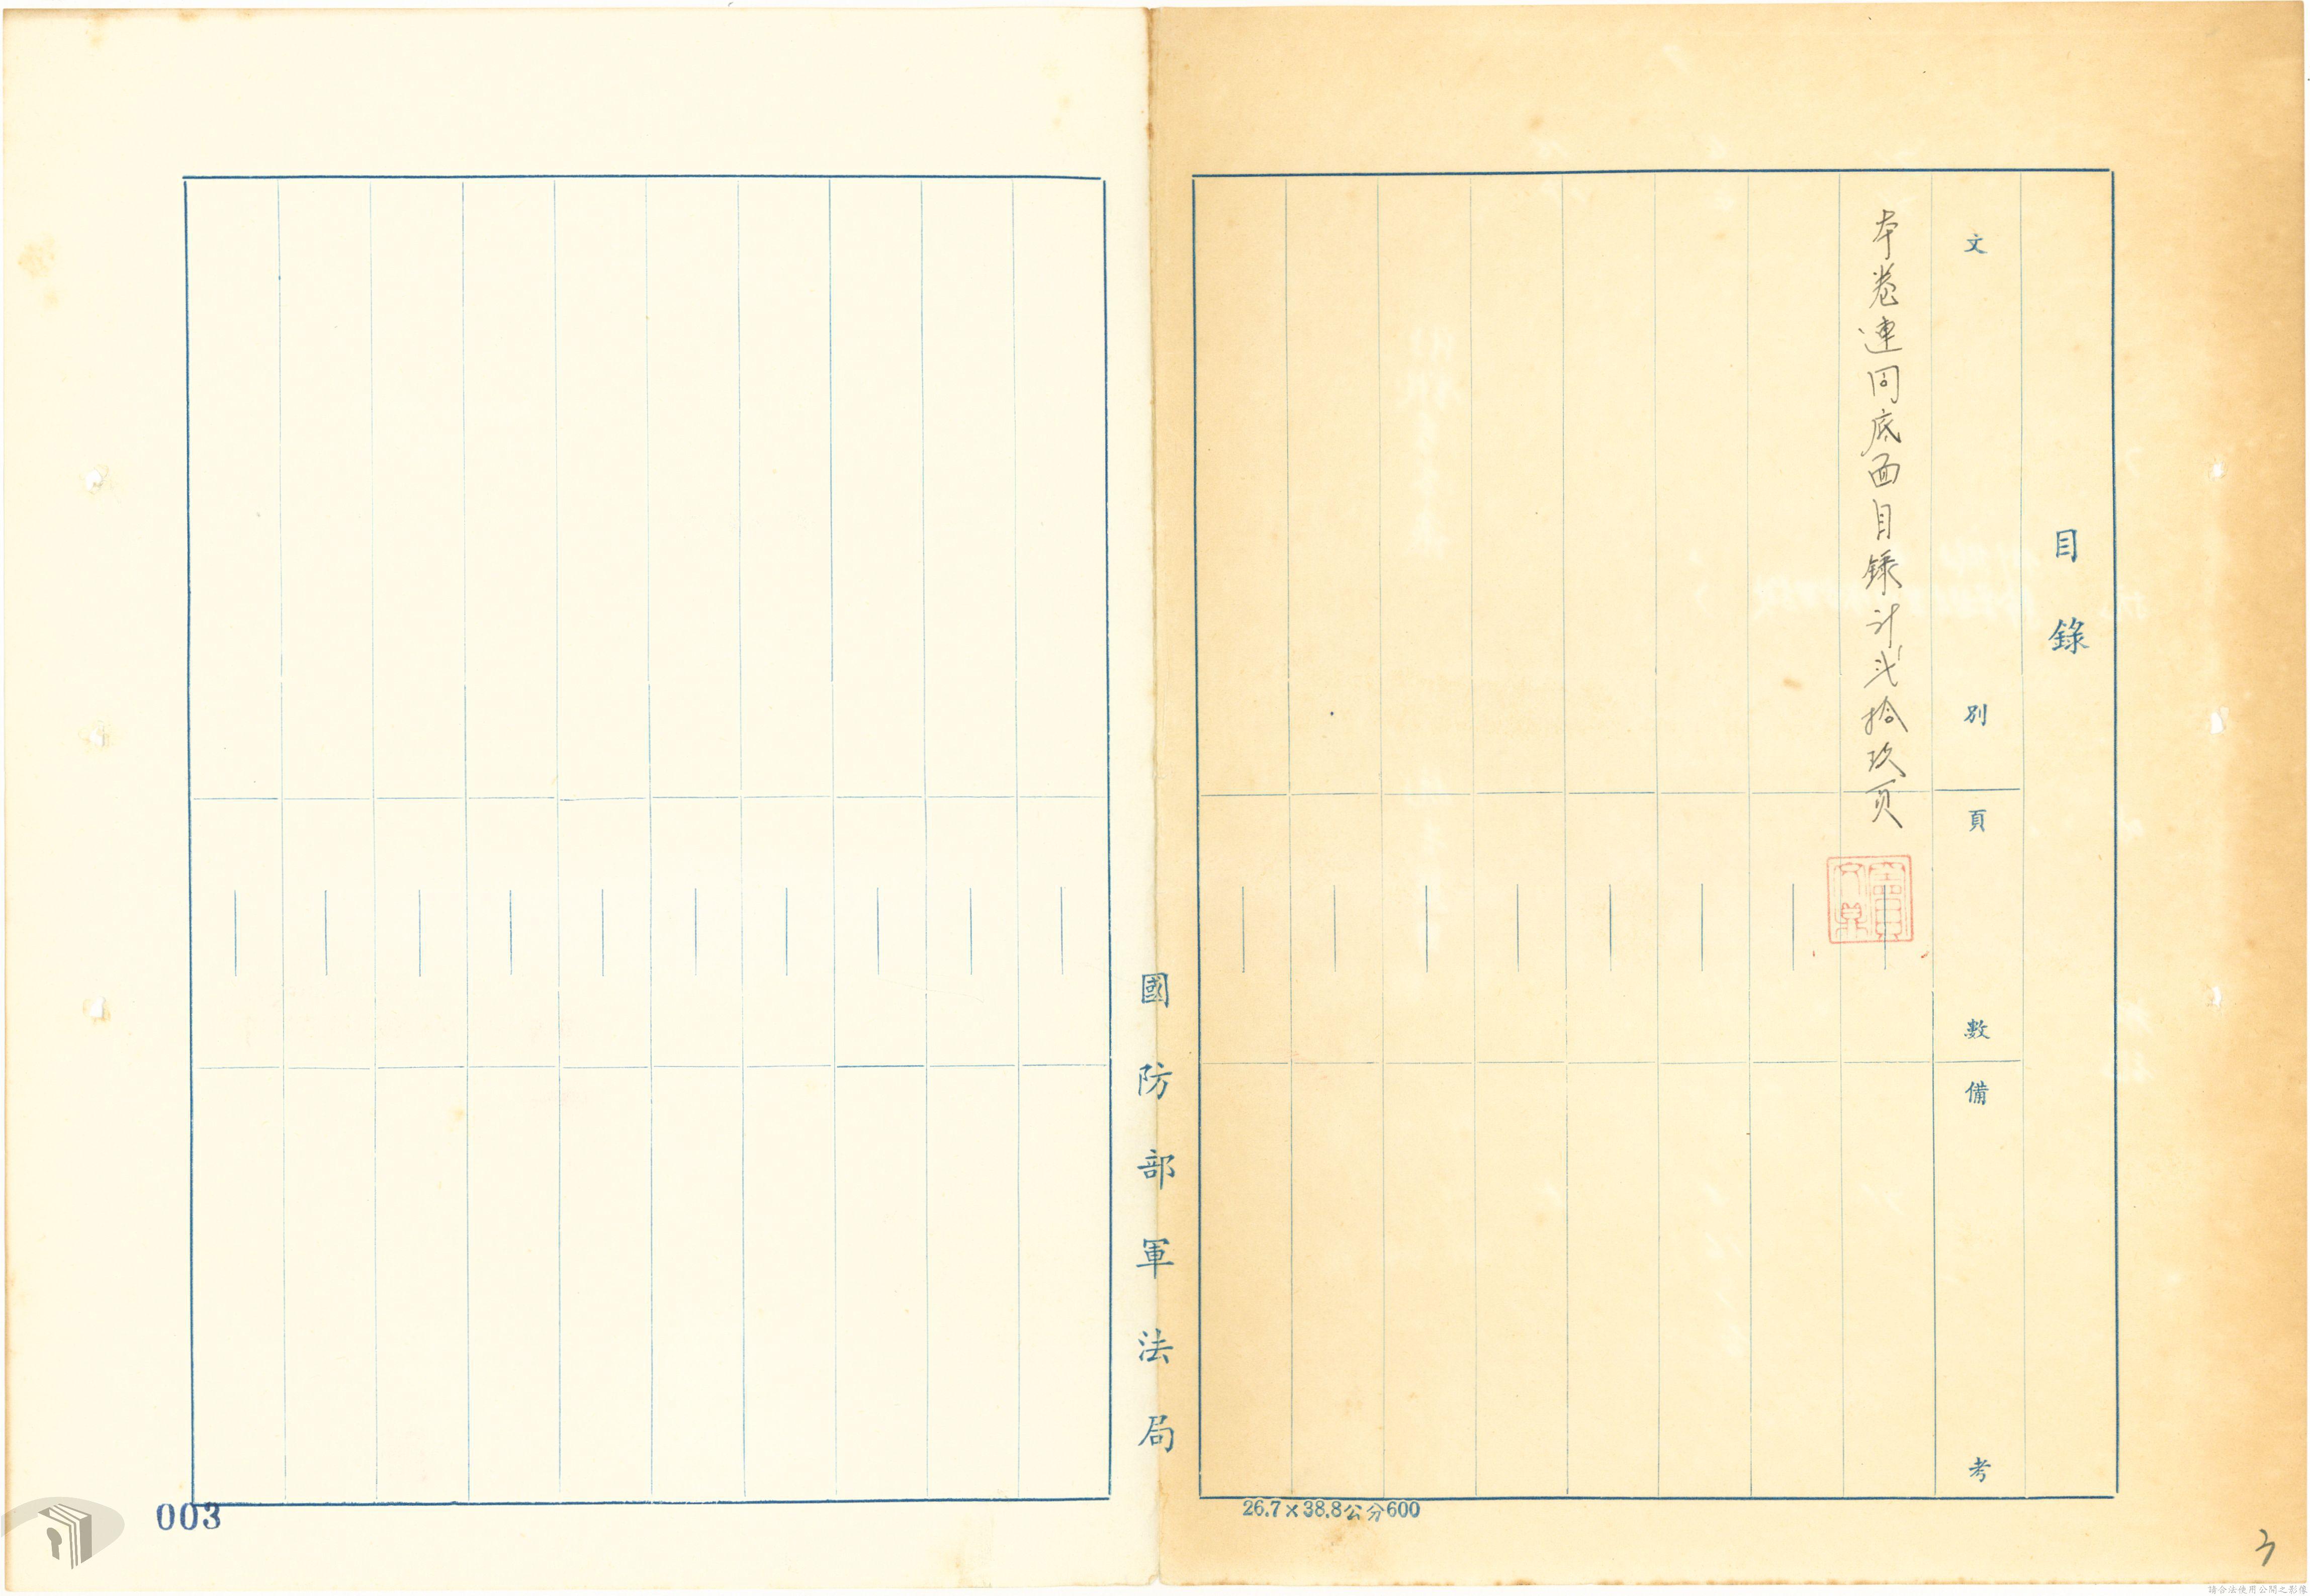 目錄
文別
頁數
備考
本卷連同底面目錄計弍拾玖頁
國防部軍法局
26.7×38.8公分600
003
3
請合法使用公開之影像